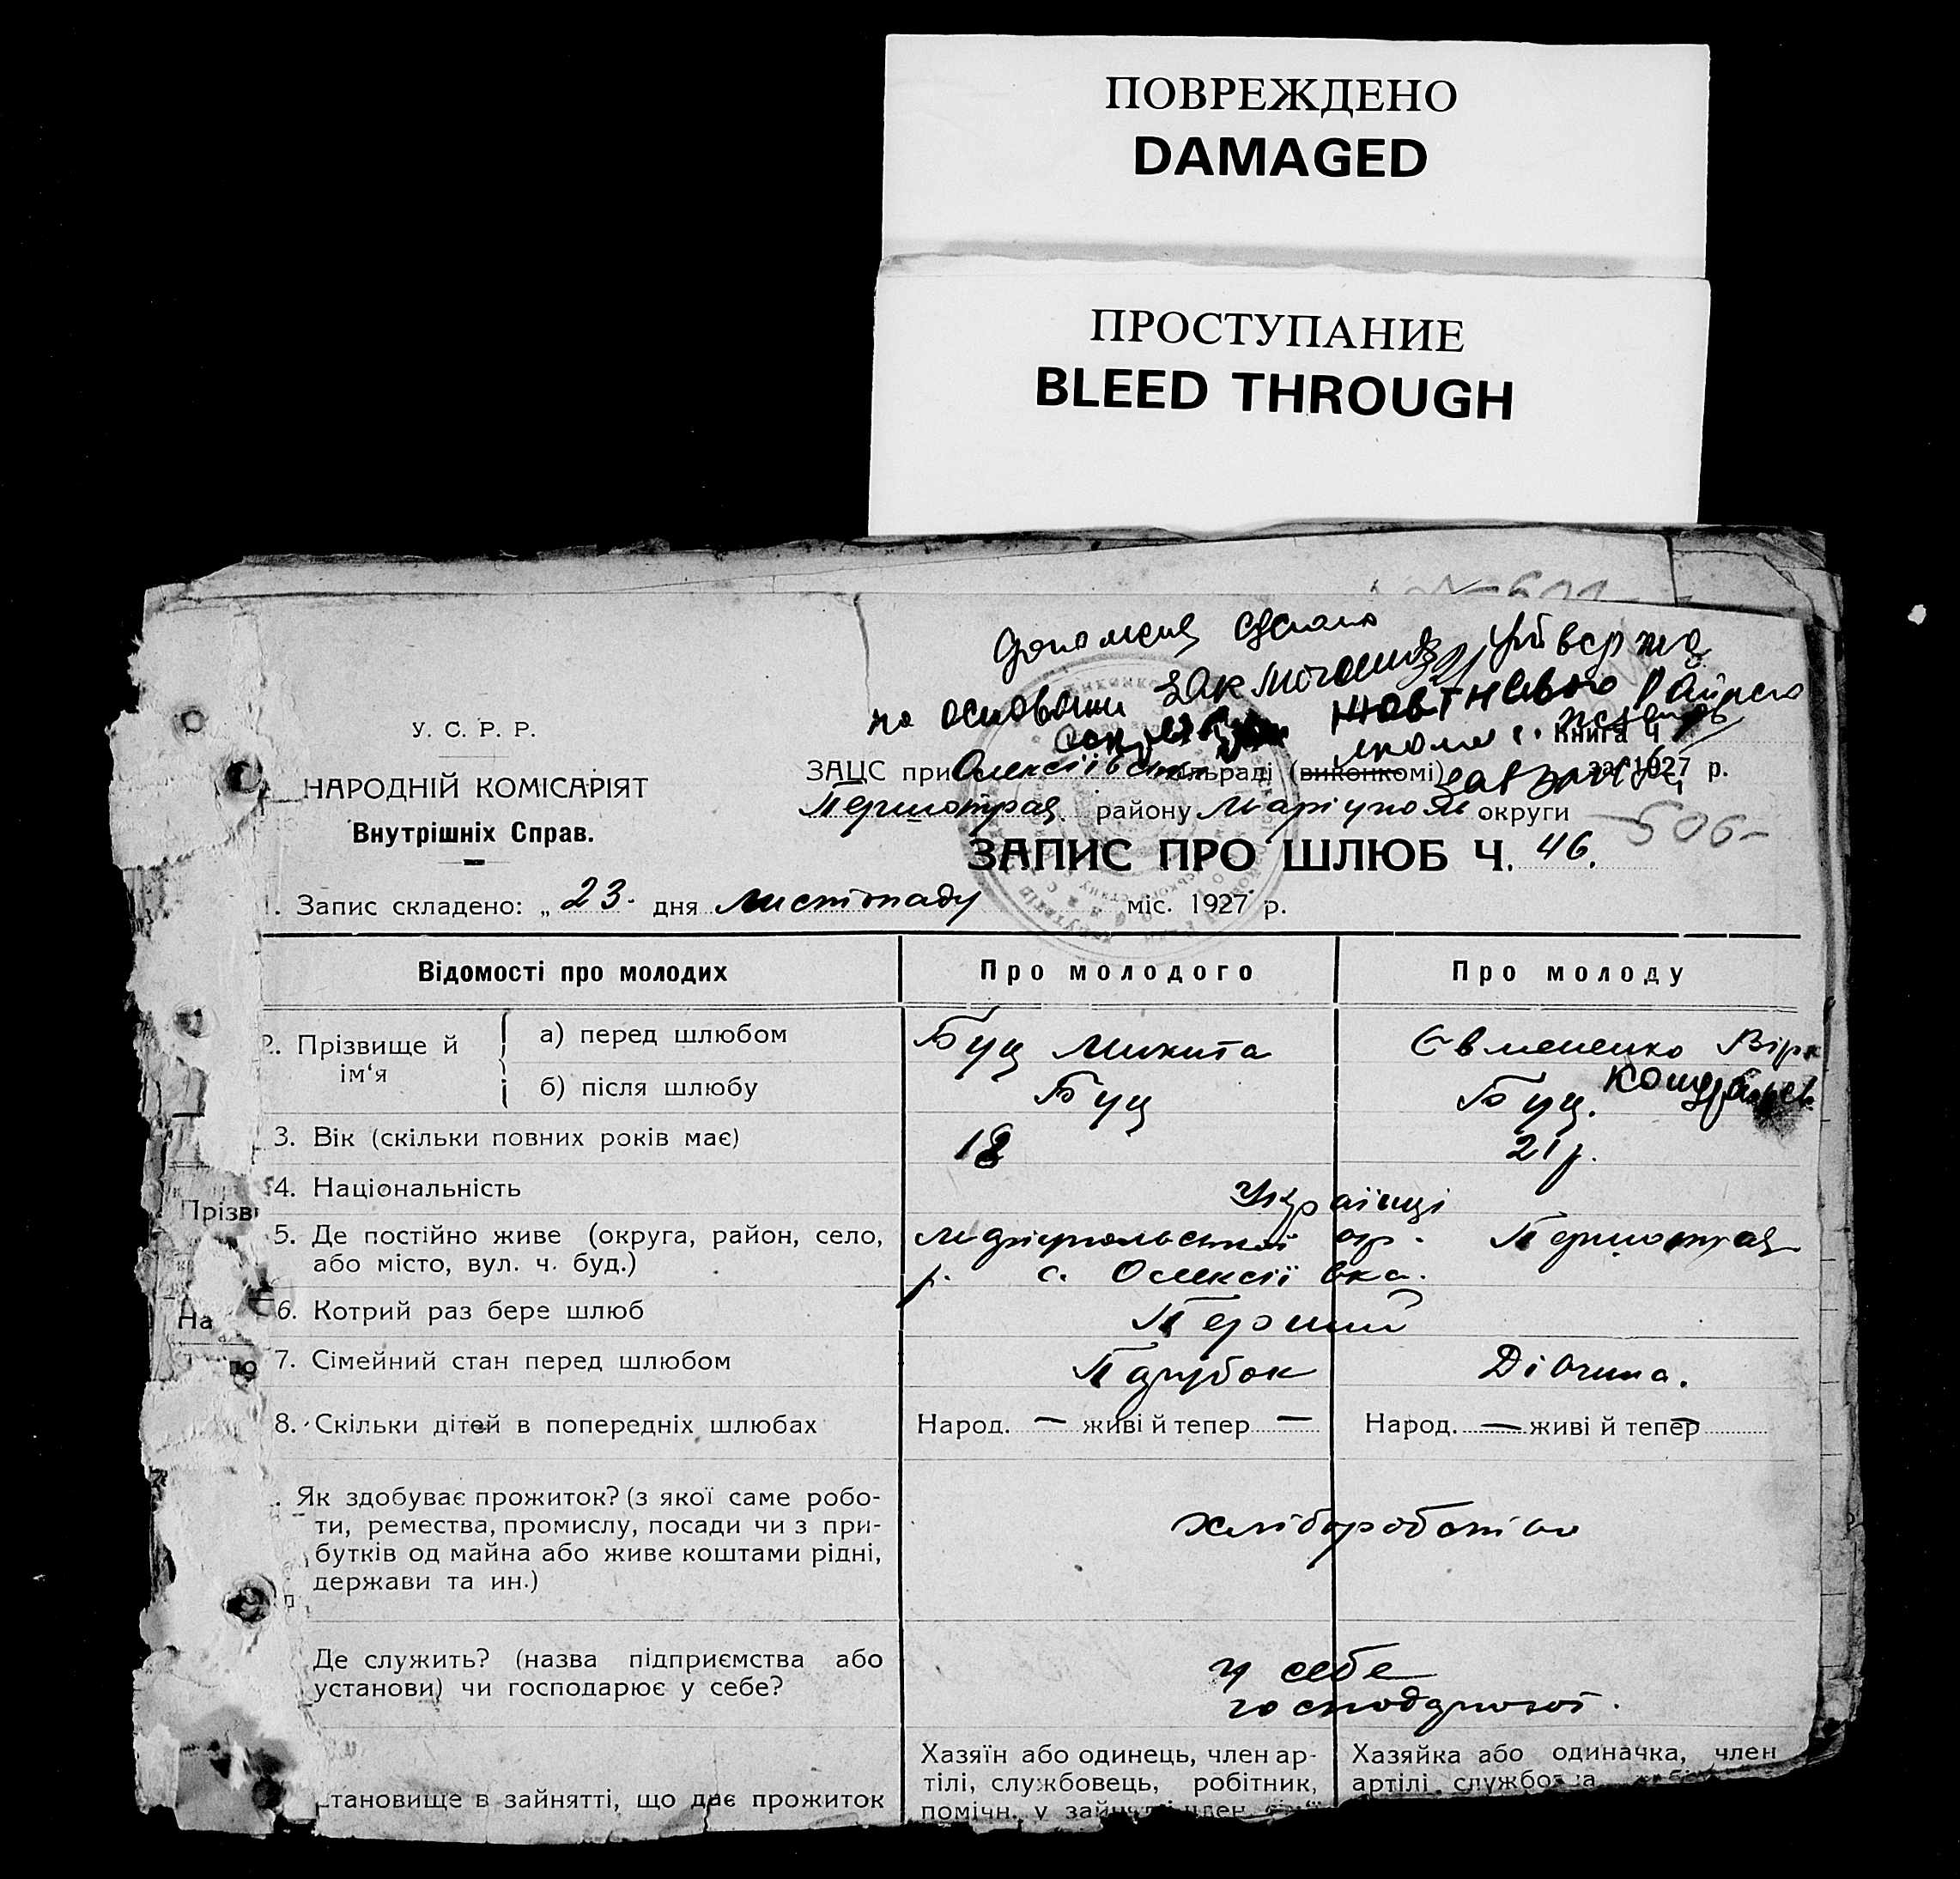 ПОВРЕЖДЕНО
DAMAGED
ПРОСТУПАНИЕ
BLEED THROUGH
на основании заключения
У. С. Р. Р.
НАРОДНІЙ КОМІСАРІЯТ
Внутрішніх Справ.
Книга Ч.
ЗАЦС при Олексіївськ сільраді (виконкомі) за 1927 р.
Першотрав. району Маріуполь округи
506
ЗАПИС ПРО ШЛЮБ Ч. 46.
1. Запис складено: „23. дня листопаду міс. 1927 р.
Відомості про молодих Про молодого Про молоду
2. Прізвище й ім‘я
а) перед шлюбом Буц Микита Євмененко Віра
б) після шлюбу Буц Буц.
3. Вік (скільки повних років має) 18 21 р.
4. Національність Українці
5. Де постійно живе (округа, район, село, Маріупольської окр. Першотрав
або місто, вул. ч. буд.) р. с. Олексіївка.
6. Котрий раз бере шлюб Перший
7. Сімейний стан перед шлюбом Парубок Дівчина.
8. Скільки дітей в попередніх шлюбах Народ. — живі й тепер — Народ. — живі й тепер —
Як здобуває прожиток? (з якої саме робо-
ти, ремества, промислу, посади чи з при- хліборобство
бутків од майна або живе коштами рідні,
держави та ин.)
Де служить? (назва підприємства або у себе
установи) чи господарює у себе? господарюют.
Хазяїн або одинець, член ар- Хазяйка або одиначка, член
тілі, службовець, робітник, артілі
тановище в зайнятті, що дає прожиток помічн. у